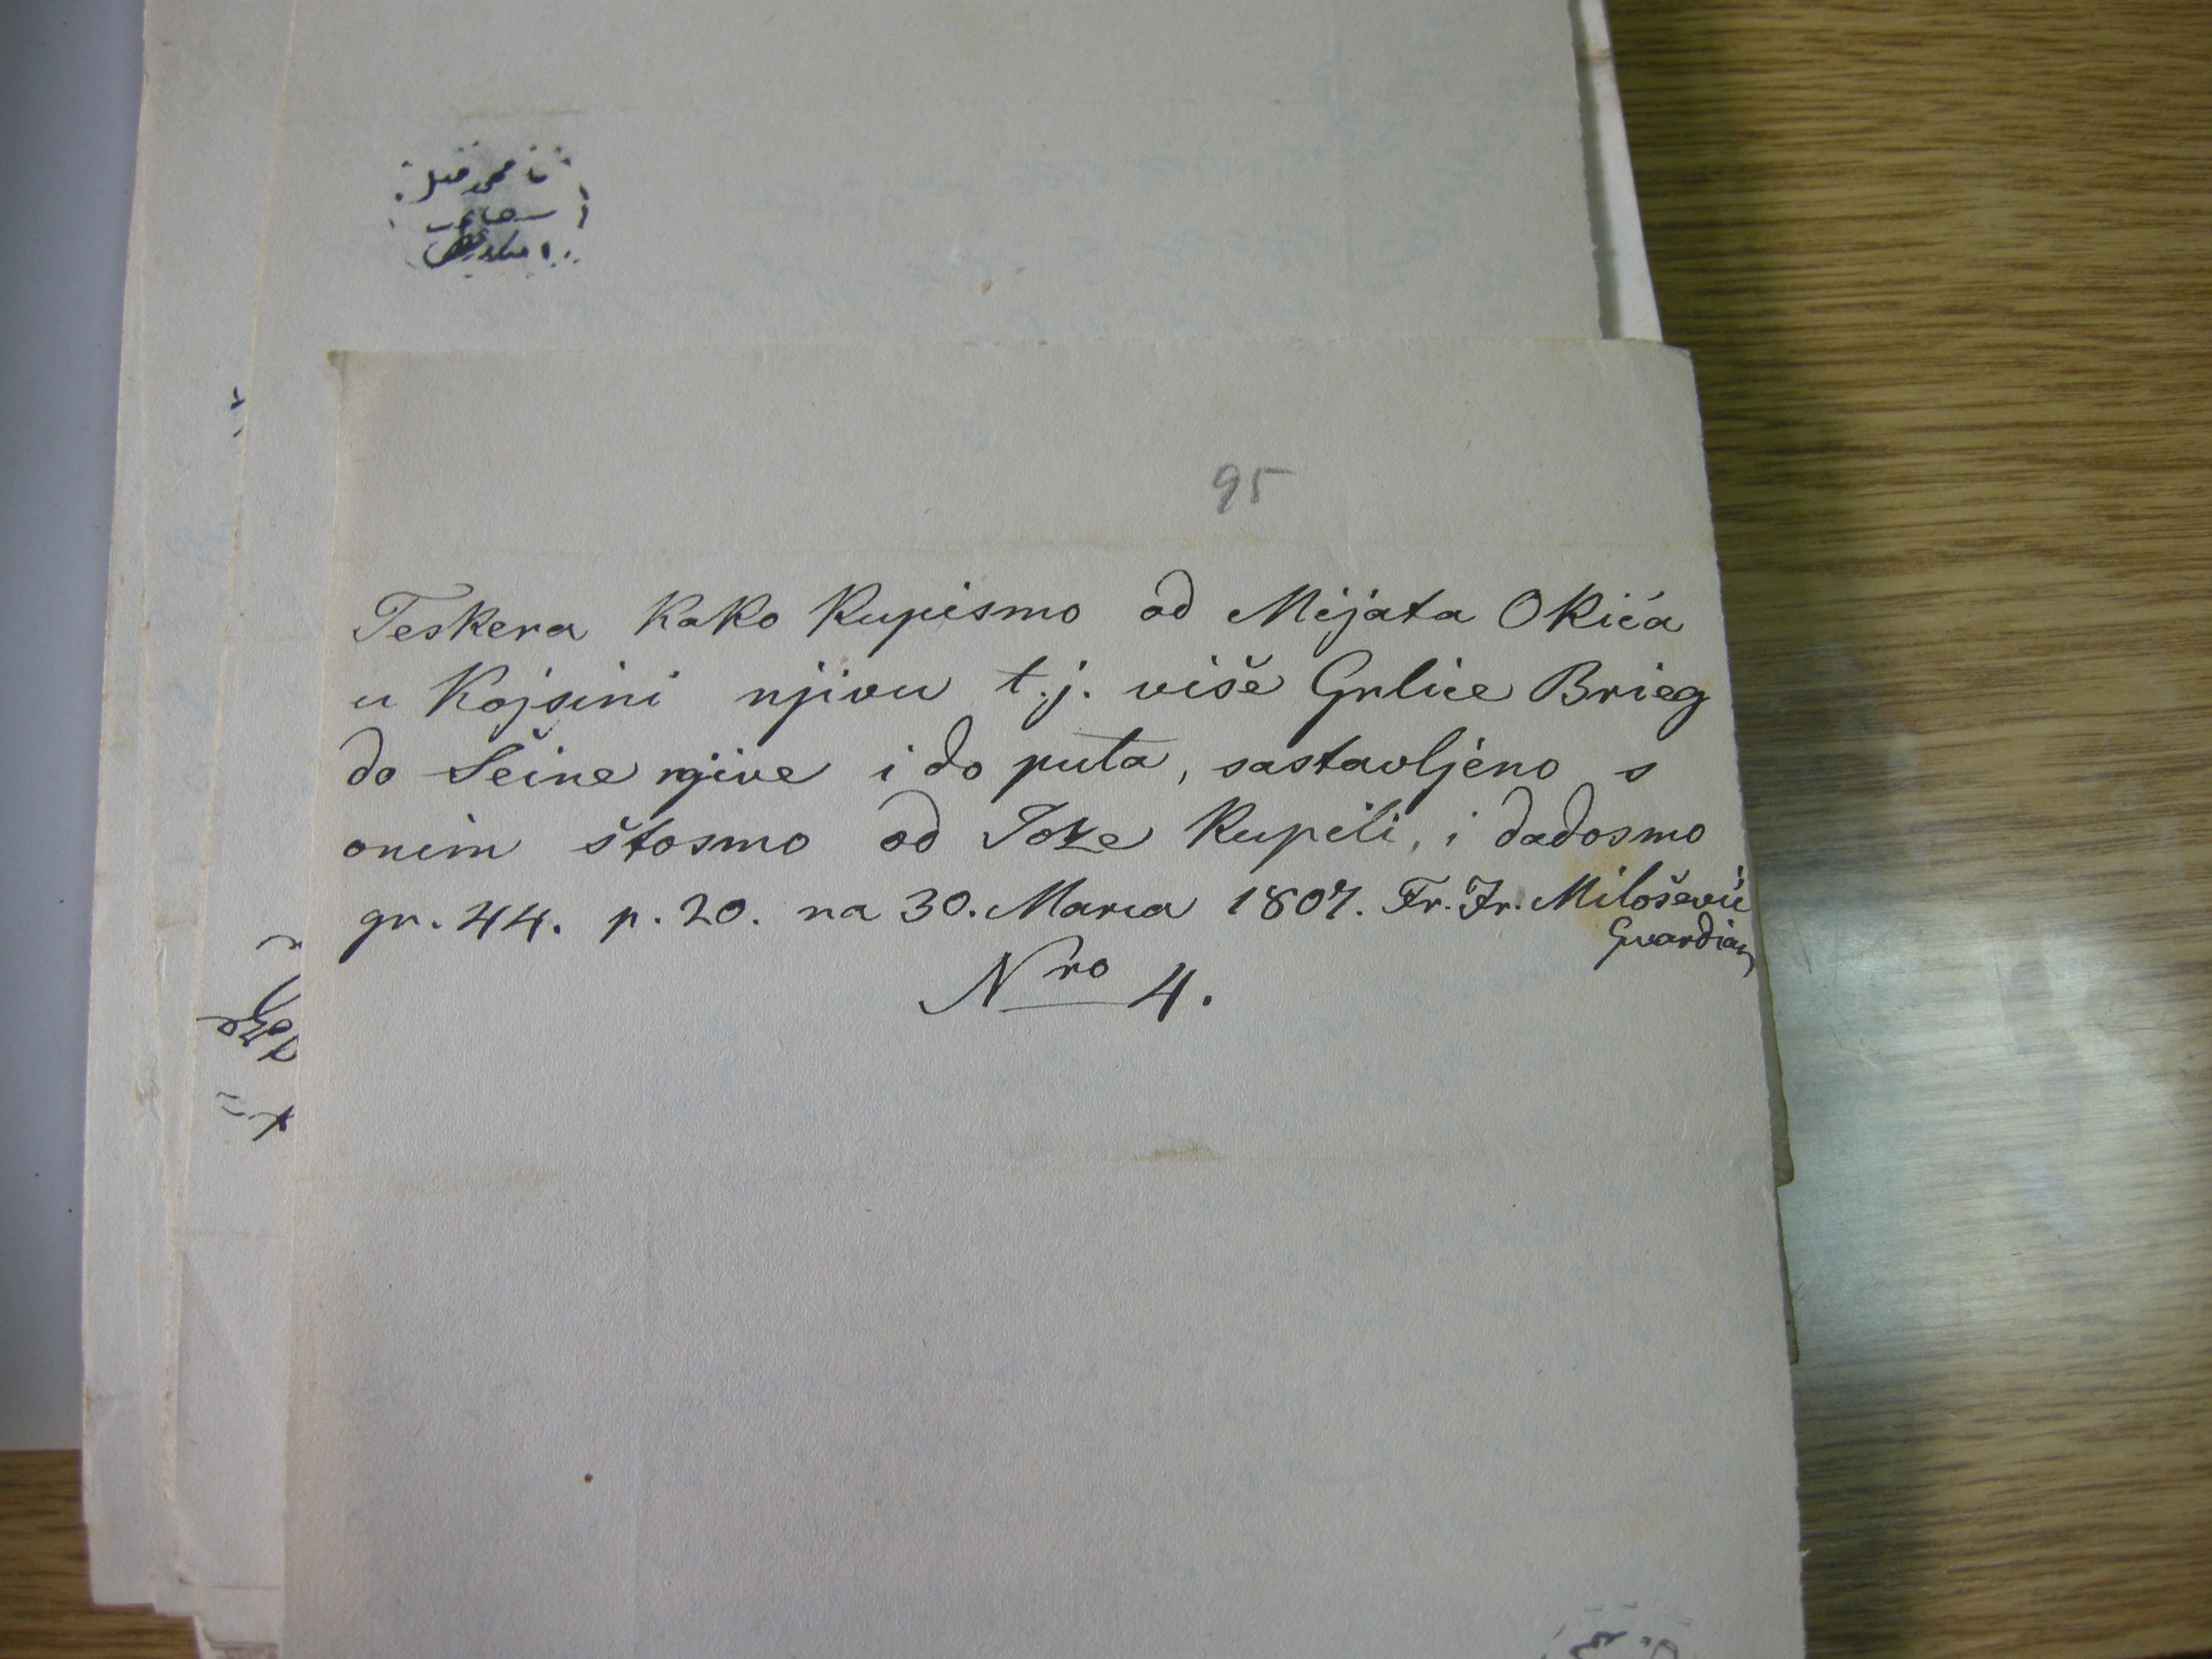 95
Teskera kako kupismo od Mijata Okića
u Kojsini njivu t.j. više Grlice Brieg
do Šeine njive i do puta, sastavljeno s
onim štosmo od Joze kupili, i dadosmo
gr. 44. p. 20. na 30. Marca 1807. Fr. Fr. Milošević
Gvardian
Nro 4.